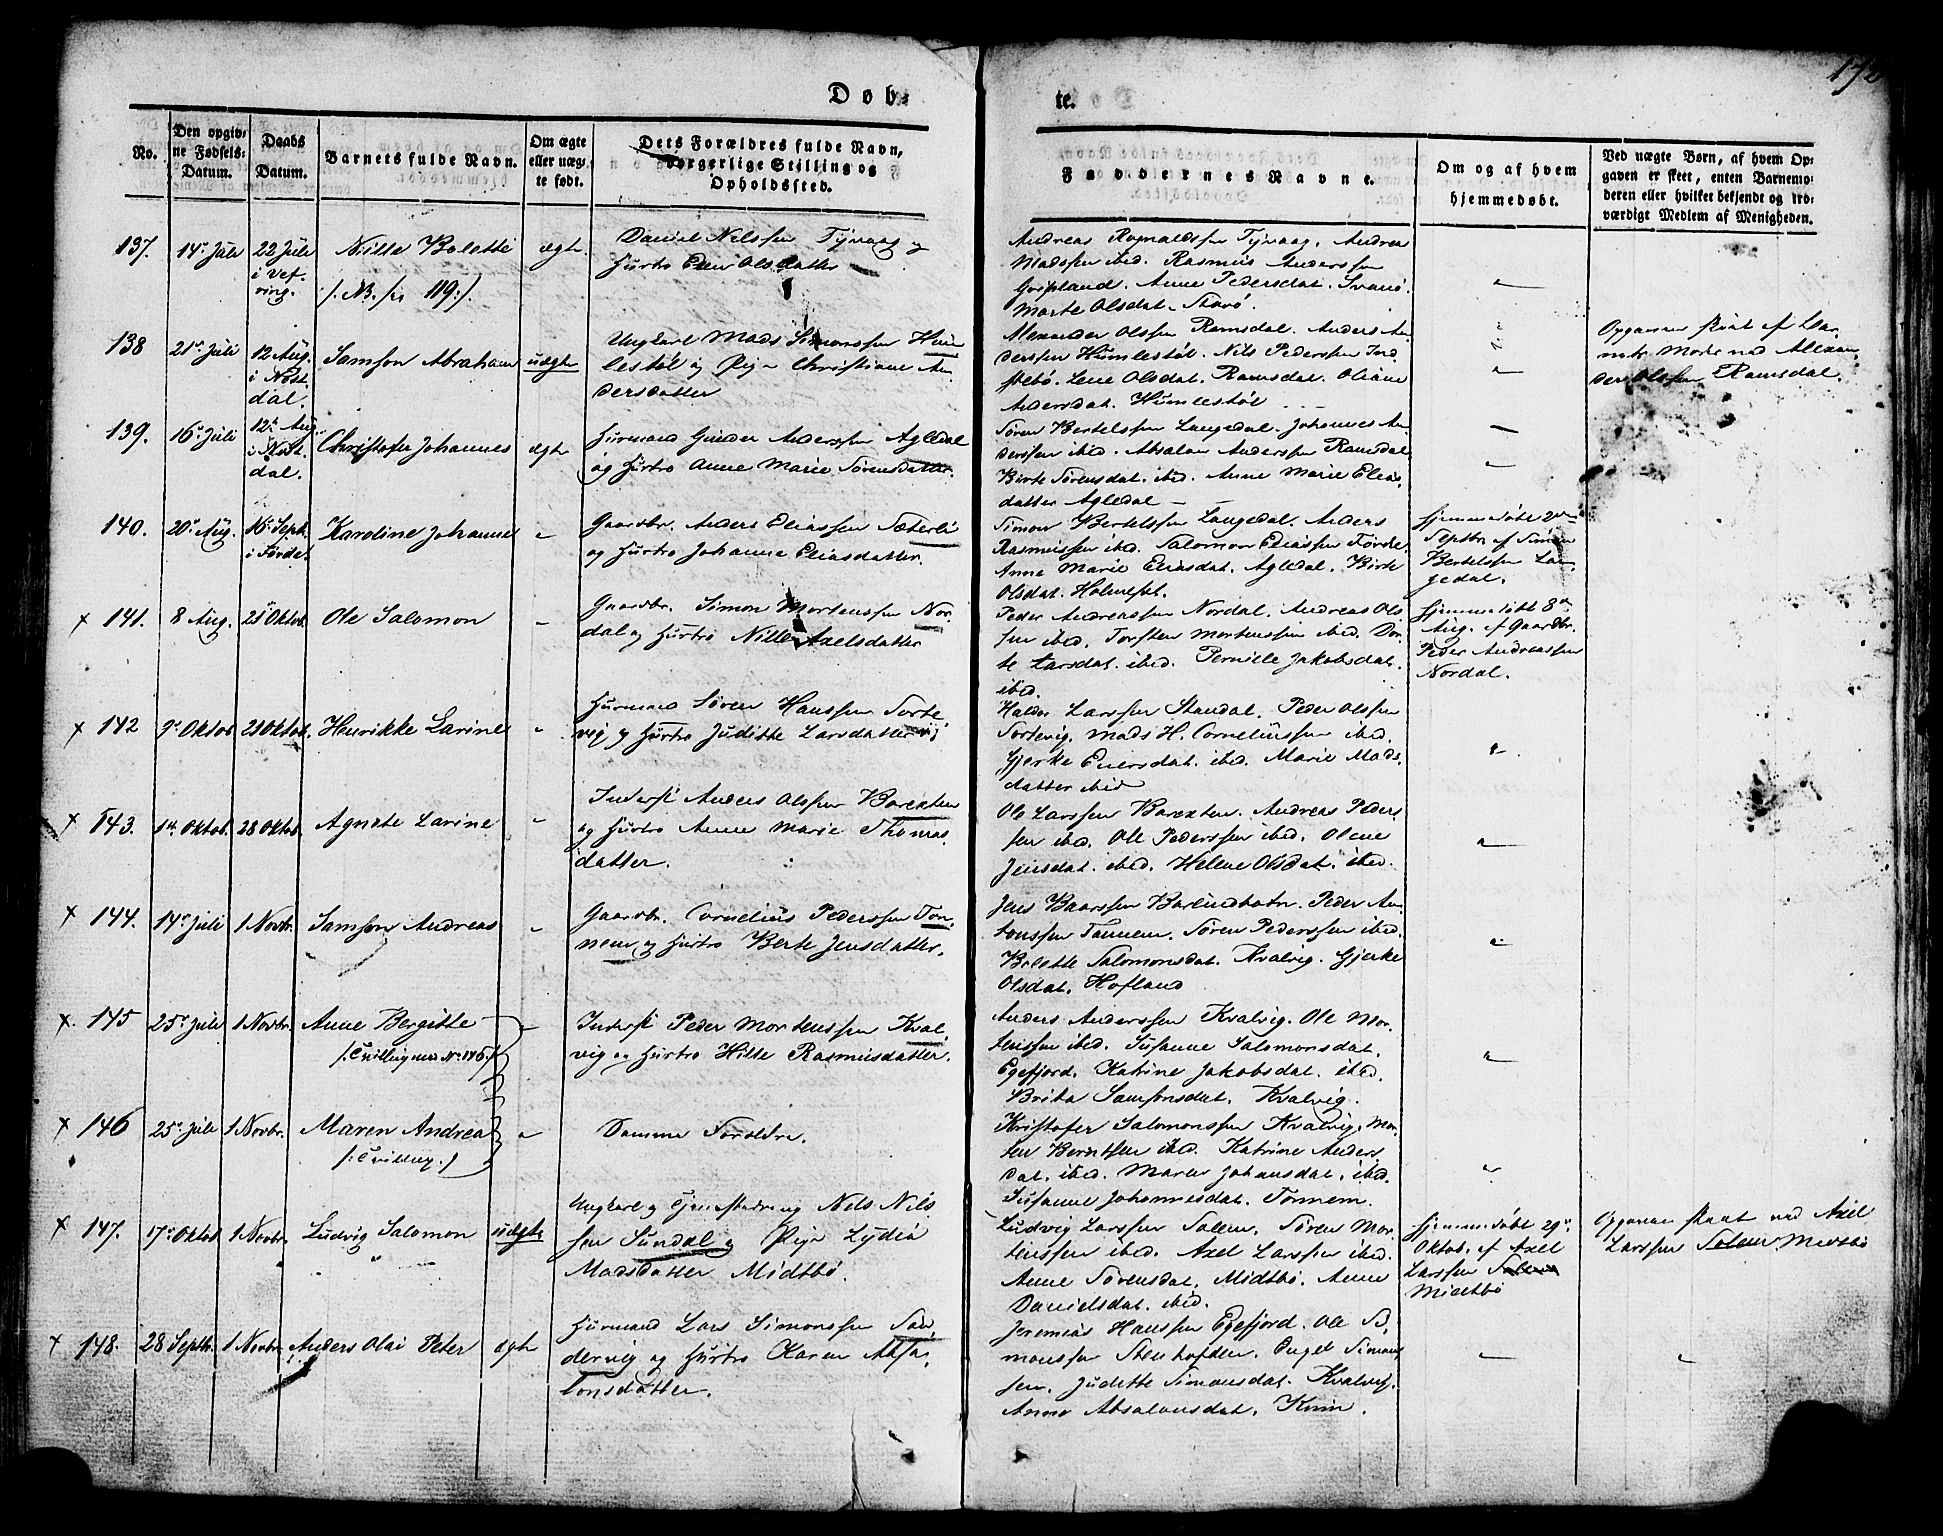 172
Døb-
te.
No.
Den opgiv-
ne Fødsels-
Datum.
Daabs
Datum.
Barnets fulde Navn.
Om ægte
eller uæg-
te født.
Dets Forældres fulde Navn,
borgerlige Stilling og
Opholdssted.
Faddernes Navne.
Om og af hvem
hjemmedøbt.
Ved uægte Børn, af hvem Op-
gaven er skeet, enten Barnemo-
deren eller hvilket bekjendt og tro-
værdigt Medlem af Menigheden.
137.
14de Juli
22 Juli
i Vef-
ring.
Nille Bolette
/: NB. No 119:/.
ægte
Daniel Nilssen Tyvaag og
Hustro Elen Olsdatter
Andreas Rognaldssen Tyvaag. Andrea
Madssen ibid. Rasmus Anderssen
Gripland. Anne Pedersdat. Svanø.
Marte Olsdat. Stavø.
138
21de Juli
12 Aug.
i Nøst-
dal.
Samson Abraham
uægte
Ungkarl Mads Simonssen Hum-
lestøl og Pige Christiane An-
dersdatter
Alexander Olssen Ramsdal. Anders An-
derssen Humlestøl. Nils Pederssen Ind-
stebø. Lene Olsdat. Ramsdal. Oliane
Andersdat. Humlestøl
Opgaven skeet af Bar-
nets Moder ved Alexan-
der Olssen Ramsdal.
139.
16de Juli
12te Aug.
i Nøst-
dal.
Christofer Johannes
ægte
Husmand Gunder Anderssen Agledal
og Hustro Anne Marie Sørensdatter.
Søren Bertelssen Langedal. Johannes An-
derssen ibid. Absalon Anderssen Ramsdal
Birte Sørensdat. ibid. Anne Marie Elias-
datter Agledal
140.
20de Aug.
16 Septb.
i Førde
Karoline Johanne
Gaardbr. Anders Eliassen Sæterli
og Hustro Johanne Eliasdatter.
Simon Bertelssen Langedal. Anders
Rasmussen ibid. Salomon Eliassen Førde.
Anne Marie Eliasdat. Agledal. Birte
Olsdat. Holmeset.
Hjemmedøbt 2den
Septbr. af Simon
Bertelssen Lan-
gedal.
141.
8 Aug.
21 Oktob.
Ole Salomon
Gaardbr. Simon Mortenssen Nor-
dal og Hustro Nille Axelsdatter
Peder Andreassen Nordal. Andreas Ols-
sen ibid. Torsten Mortenssen ibid. Dor-
te Larsdat. ibid. Pernille Jakobsdat.
ibid.
Hjemmedøbt 8de
Aug. af Gaardbr.
Peder Andreassen
Nordal.
142
9de Oktob
21 Oktob.
Henrikke Larine
Husmand Søren Hanssen Sorte-
vig og Hustro Juditte Larsdatter
Haldor Larssen Standal. Peder Olssen
Sortevig. Mads H. Corneliussen ibid.
Gjerke Eliersdat. ibid. Marie Mads-
datter ibid
143.
1ste Oktob.
28 Oktob.
Agnete Larine
Inderst Anders Olssen Barexten
og Hustro Anne Marie Thomas-
datter.
Ole Larssen Barexten. Andreas Peders-
sen ibid. Ole Pederssen ibid. Olene
Jensdat. ibid. Helene Olsdat. ibid.
144.
14de Juli
1 Novbr.
Samson Andreas
Gaardbr. Cornelius Pederssen Ton-
nem og Hustro Berte Jensdatter.
Jens Baarssen Barlindbotn. Peder An-
tonssen Tonnem. Søren Pederssen ibid.
Bolette Salomonsdat. Kvalvig. Gjerke
Olsdat. Hofland
145
25de Juli
1 Novbr.
Anne Bergitte
/: Tvilling med No 146:/
Inderst Peder Mortenssen Kval-
vig og Hustro Hilte Rasmusdatter.
Anders Anderssen Kvalvig. Ole Mor-
tenssen ibid. Susanne Salomonsdat.
Egefjord. Katrine Jakobsdat. ibid.
Brita Samsonsdat. Kvalvig.
146
25de Juli
1 Novbr.
Maren Andrea
/: Tvilling:/
Samme Forældre.
Kristofer Salomonssen Kvalvig. Mor-
ten Berntsen ibid. Katrine Anders-
dat. ibid. Maren Johansdat. ibid.
Susanne Johannesdat. Tonnem.
147.
17de Oktob
1 Novbr.
Ludvig Salomon
uægte
Ungkarl og Tjenestedreng Nils Nils-
sen Sundal og Pige Lydia
Madsdatter Midtbø.
Ludvig Larssen Solem. Søren Mor-
tenssen ibid. Axel Larssen ibid.
Anne Sørensdat. Midtbø. Anne
Danielsdat. ibid.
Hjemmedøbt 29de
Oktob. af Axel
Larssen Solem
Midtbø
Opgaven skeet ved Axel
Larssen Solem Midtbø
148.
28 Septb.
1 Novbr.
Anders Olai Peter
ægte
Husmand Lars Simonssen San-
dervig og Hustro Karen Absa-
lonsdatter.
Jeremias Hanssen Egefjord. Ole Si-
monssen Stenhofden. Engel Simons-
sen. Juditte Simonsdat. Kvalvig.
Anne Absalonsdat. Kinn.